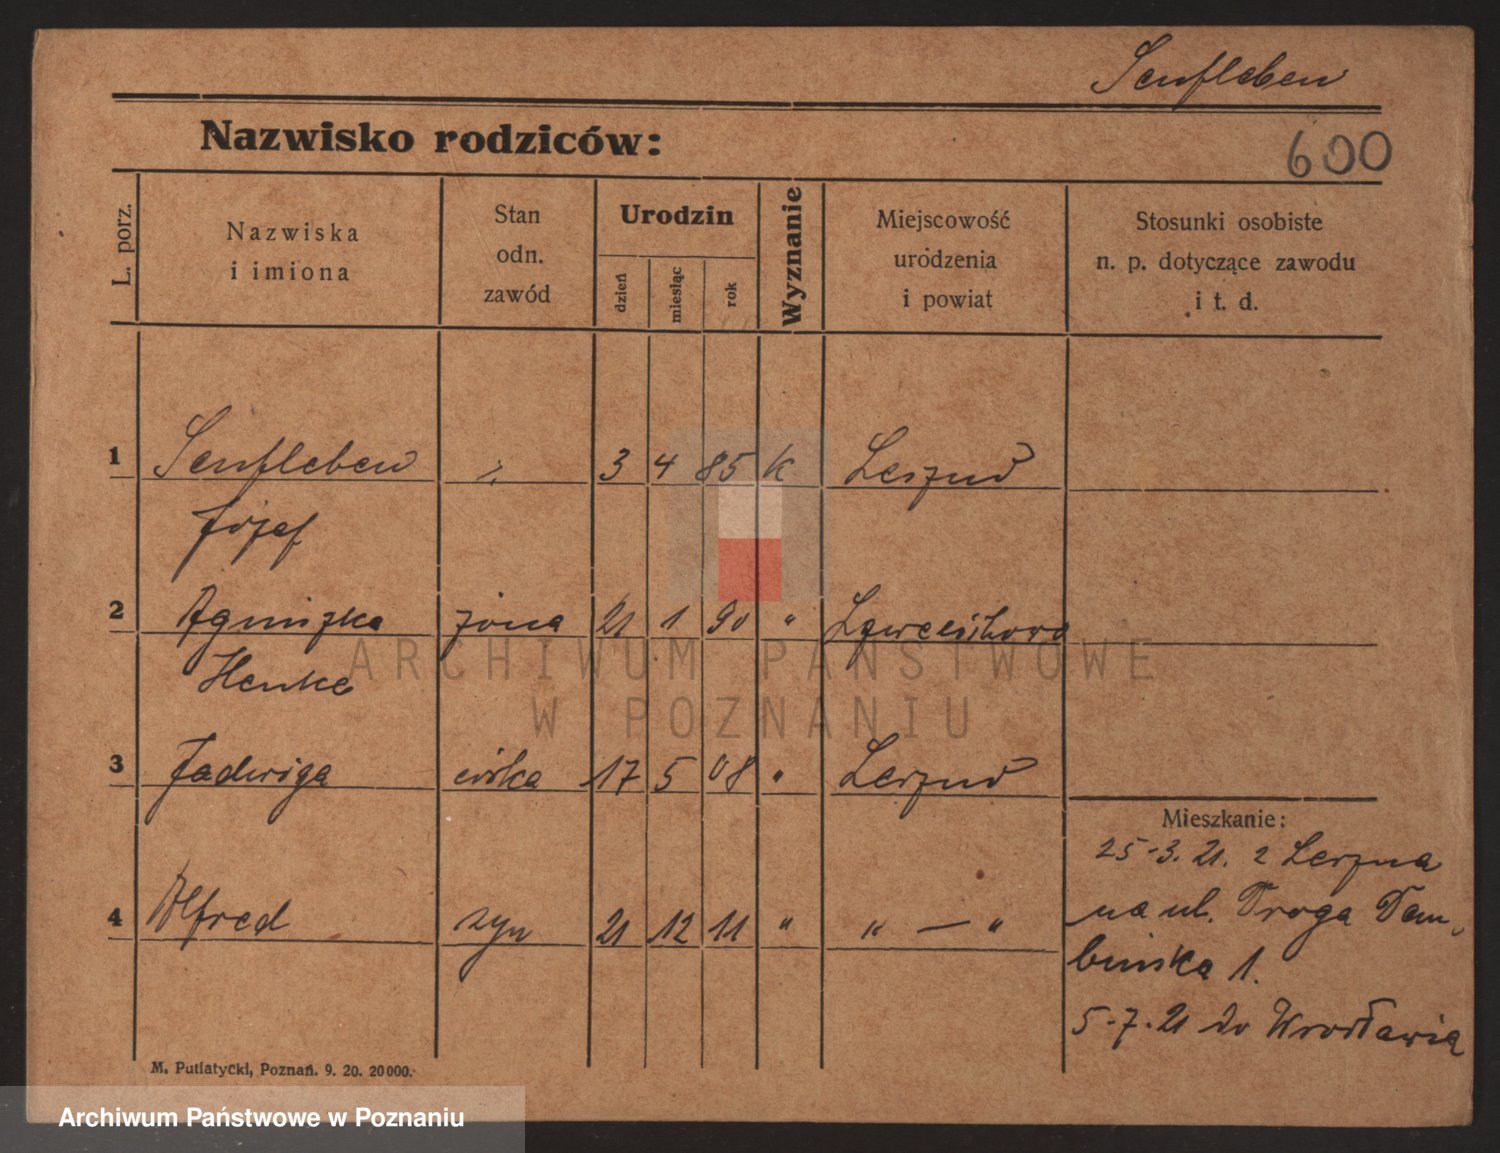 Senfleben
Nazwisko rodziców:
600
L. porz.
Nazwiska
i imiona
Stan
odn.
zawód
Urodzin
dzień
miesiąc
rok
Wyznanie
Miejscowość
urodzenia
i powiat
Stosunki osobiste
n. p. dotyczące zawodu
i t. d.
1 Senfleben 3 4 85 K
Józef
2 Agniszka żona 21 1 90 "
Henke
3 Jadwiga córka 17 5 08 "
4 Alfred syn 21 12 11 " " — "
Mieszkanie:
25-3. 21. z Leszna
na ul. Droga Dem
bińska 1.
5-7. 21 do Wrocławia
M. Putiatycki, Poznań. 9. 20. 20000.
ARCHIWUM PAŃSTWOWE
W POZNANIU
Archiwum Państwowe w Poznaniu